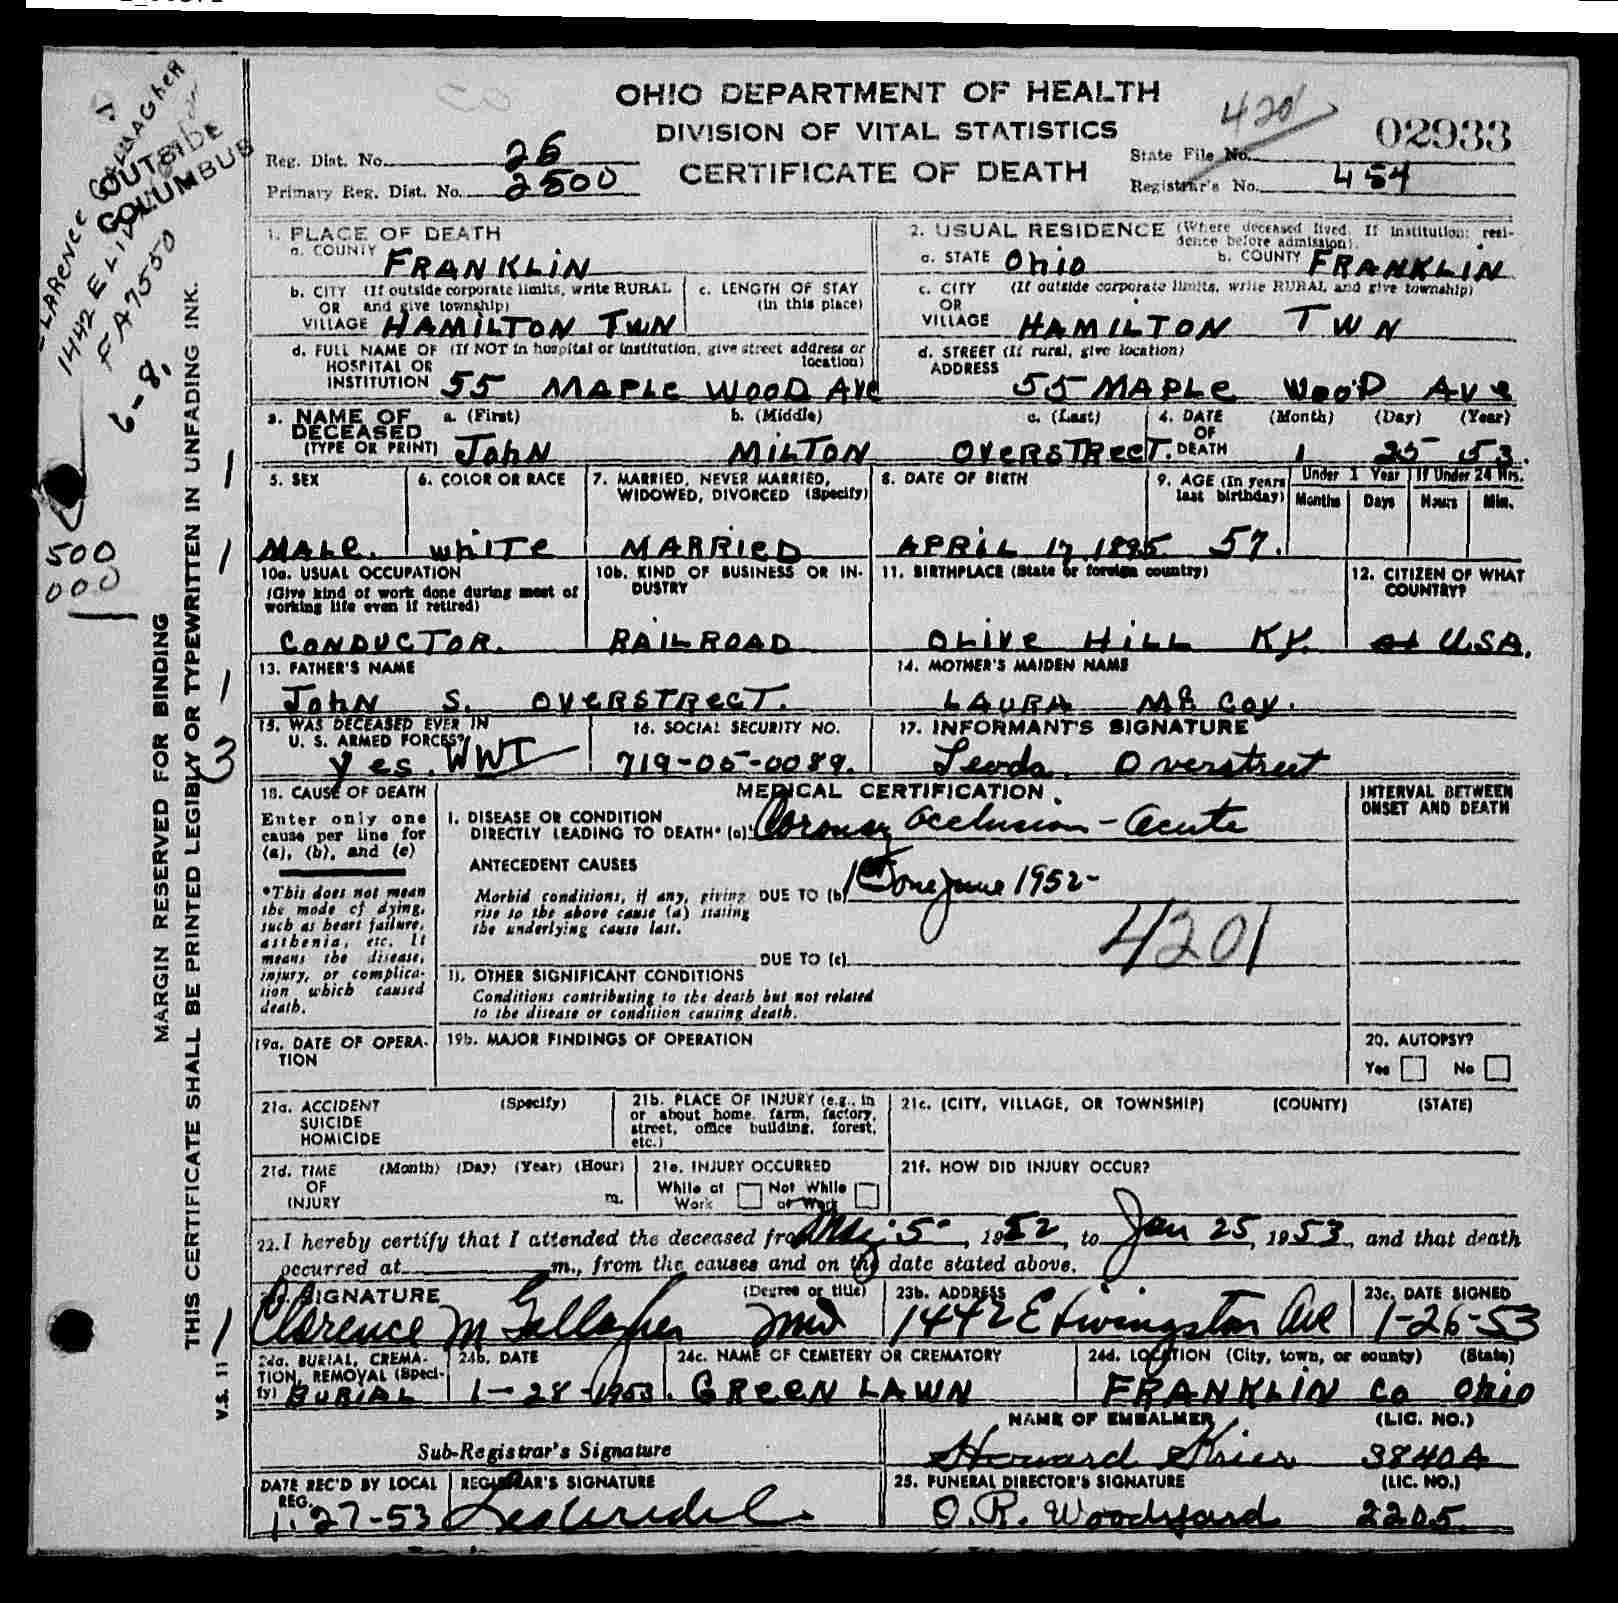 OHIO DEPARTMENT OF HEALTH
DIVISION OF VITAL STATISTICS
CERTIFICATE OF DEATH
Reg. Dist. No. 26
Primary Reg. Dist. No. 2500
4201
State File No. 02933
Registrar's No. 454
CLARENCE GALLAGHER
OUTSIDE
COLUMBUS
1442 E LIV
FA 7550
6-8,
500
000
MARGIN RESERVED FOR BINDING
THIS CERTIFICATE SHALL BE PRINTED LEGIBLY OR TYPEWRITTEN IN UNFADING INK.
V.S. 11
3
1. PLACE OF DEATH
a. COUNTY FRANKLIN
b. CITY (If outside corporate limits, write RURAL
OR and give township)
VILLAGE HAMILTON TWN
c. LENGTH OF STAY
(in this place)
d. FULL NAME OF (If NOT in hospital or institution, give street address or
HOSPITAL OR location)
INSTITUTION 55 MAPLE WOOD AVE
2. USUAL RESIDENCE (Where deceased lived. If institution: resi-
dence before admission).
a. STATE Ohio b. COUNTY FRANKLIN
c. CITY (If outside corporate limits, write RURAL and give township)
OR
VILLAGE HAMILTON TWN
d. STREET (If rural, give location)
ADDRESS 55 MAPLE WOOD AVE
3. NAME OF a. (First) b. (Middle) c. (Last)
DECEASED
(TYPE OR PRINT) JOHN MILTON OVERSTREET.
4. DATE (Month) (Day) (Year)
OF
DEATH 1 25 53.
5. SEX
MALE.
6. COLOR OR RACE
WHITE
7. MARRIED, NEVER MARRIED,
WIDOWED, DIVORCED (Specify)
MARRIED
8. DATE OF BIRTH
APRIL 17 1895
9. AGE (In years
last birthday)
57.
Under 1 Year If Under 24 Hrs.
Months Days Hours Min.
10a. USUAL OCCUPATION
(Give kind of work done during most of
working life even if retired)
CONDUCTOR.
10b. KIND OF BUSINESS OR IN-
DUSTRY
RAILROAD
11. BIRTHPLACE (State or foreign country)
OLIVE HILL KY.
12. CITIZEN OF WHAT
COUNTRY?
U.S.A.
13. FATHER'S NAME
JOHN S. OVERSTREET.
14. MOTHER'S MAIDEN NAME
LAURA McCOY.
15. WAS DECEASED EVER IN
U. S. ARMED FORCES?
Yes. WWI
16. SOCIAL SECURITY NO.
719-05-0089.
17. INFORMANT'S SIGNATURE
Leoda Overstreet
18. CAUSE OF DEATH
Enter only one
cause per line for
(a), (b), and (c)
*This does not mean
the mode of dying,
such as heart failure,
asthenia, etc. It
means the disease,
injury, or complica-
tion which caused
death.
MEDICAL CERTIFICATION
INTERVAL BETWEEN
ONSET AND DEATH
I. DISEASE OR CONDITION
DIRECTLY LEADING TO DEATH* (a) Coronary Occlusion - Acute
ANTECEDENT CAUSES
Morbid conditions, if any, giving DUE TO (b) 1st one June 1952-
rise to the above cause (a) stating
the underlying cause last.
DUE TO (c)
4201
II. OTHER SIGNIFICANT CONDITIONS
Conditions contributing to the death but not related
to the disease or condition causing death.
19a. DATE OF OPERA-
TION
19b. MAJOR FINDINGS OF OPERATION
20. AUTOPSY?
Yes No
21a. ACCIDENT (Specify)
SUICIDE
HOMICIDE
21b. PLACE OF INJURY (e.g., in
or about home, farm, factory,
street, office building, forest,
etc.)
21c. (CITY, VILLAGE, OR TOWNSHIP) (COUNTY) (STATE)
21d. TIME (Month) (Day) (Year) (Hour)
OF
INJURY m.
21e. INJURY OCCURRED
While at Not While
Work at Work
21f. HOW DID INJURY OCCUR?
22. I hereby certify that I attended the deceased from 5-, 1952, to Jan 25, 1953, and that death
occurred at m., from the causes and on the date stated above.
SIGNATURE (Degree or title)
Clarence M Gallagher MD
23b. ADDRESS
1442 E Livingston Ave
23c. DATE SIGNED
1-26-53
24a. BURIAL, CREMA-
TION, REMOVAL (Speci-
fy) BURIAL
24b. DATE
1-28-1953.
24c. NAME OF CEMETERY OR CREMATORY
GREEN LAWN
24d. LOCATION (City, town, or county) (State)
FRANKLIN Co Ohio
Sub-Registrar's Signature
NAME OF EMBALMER (LIC. NO.)
Howard 3840A
DATE REC'D BY LOCAL
REG.
1-27-53
REGISTRAR'S SIGNATURE
25. FUNERAL DIRECTOR'S SIGNATURE (LIC. NO.)
O.R. Woodyard 2205.